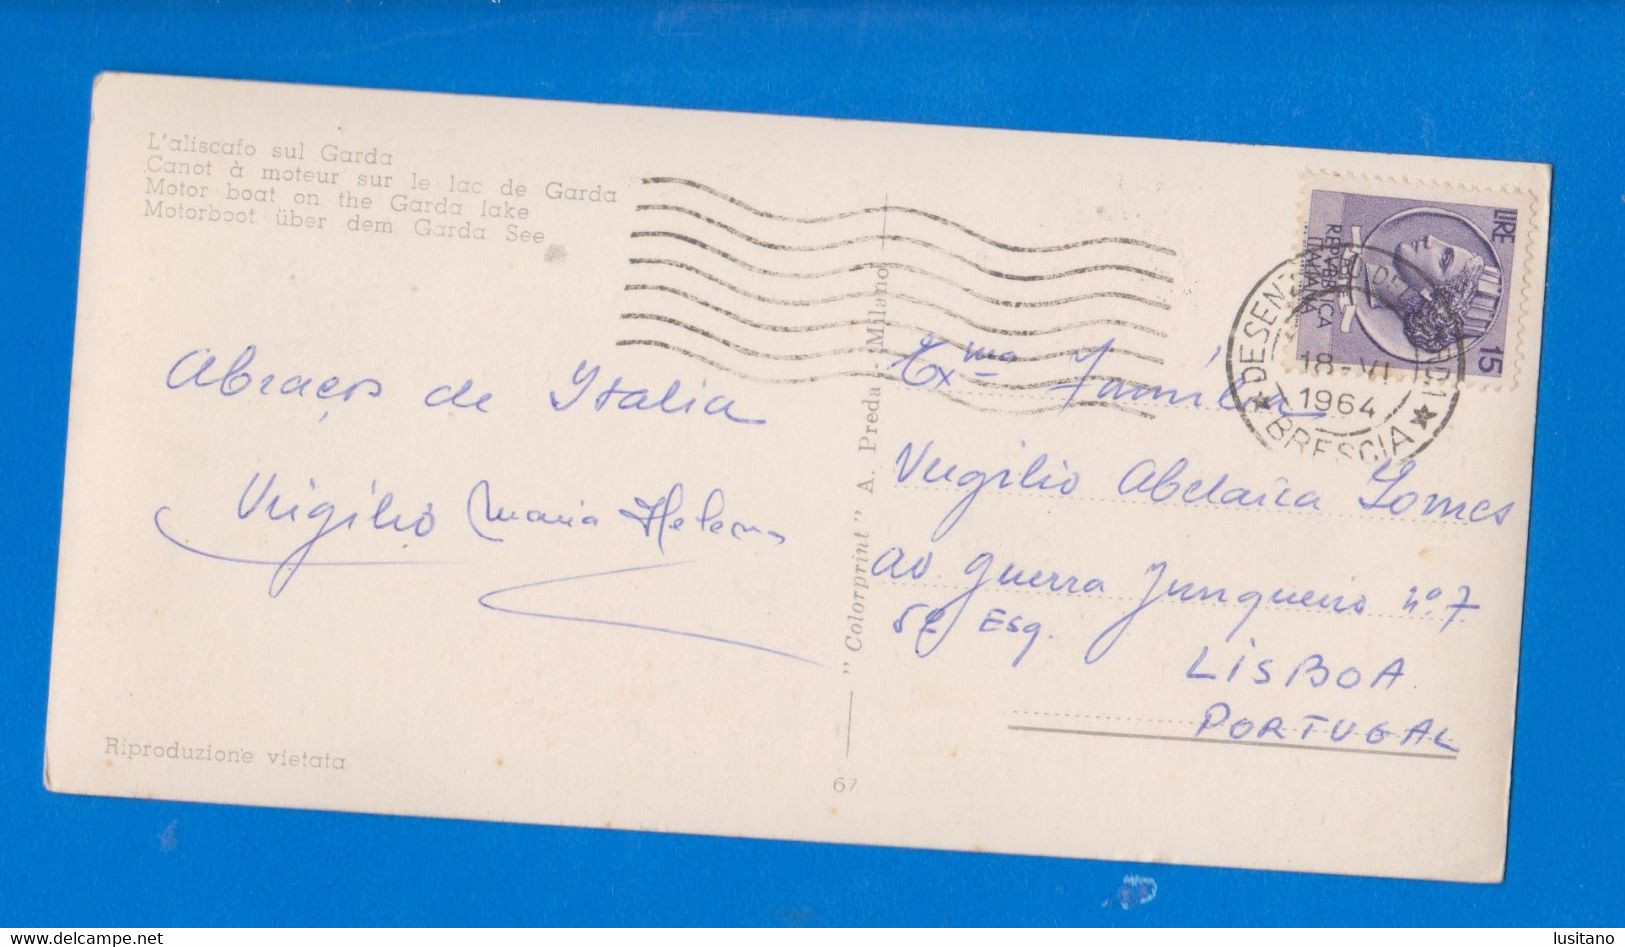 L'aliscafo sul Garda
Canot à moteur sur le lac de Garda
Motor boat on the Garda lake
Motorboot über dem Garda See
Abraços de Italia
Virgilio Maria Helena
Riproduzione vietata
"Colorprint" A. Preda - Milano
67
LIRE 15
REPVBBLICA
ITALIANA
18-VI
1964
BRESCIA
Exma Família
Virgilio Abelaira Gomes
Av. Guerra Junqueiro nº 7
5º Esq.
LISBOA
PORTUGAL
lusitano